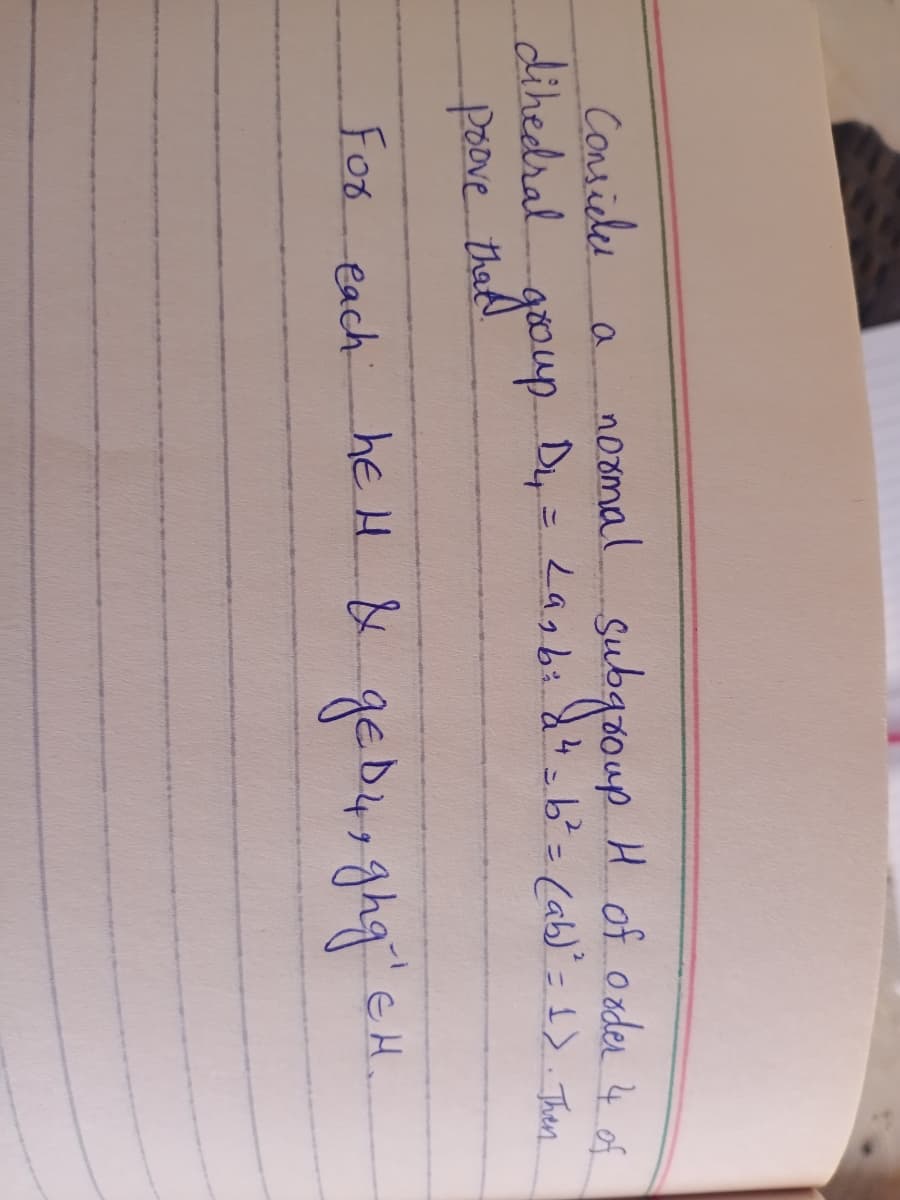 Consider a normal subgroup H of order 4 of
dihedral group D₄ = <a, b: a⁴ = b² = (ab)² = 1>. Then
prove that.
For each h∈H & g∈D₄, ghg⁻¹ ∈ H.